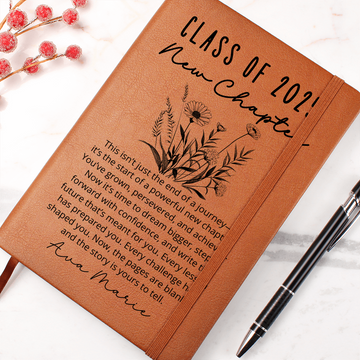 CLASS OF 202
New Chapter
This isn't just the end of a journey—
it's the start of a powerful new chapt
You've grown, persevered, and achiev
Now it's time to dream bigger, step
forward with confidence, and write t
future that's meant for you. Every less
has prepared you. Every challenge h
shaped you. Now, the pages are blank
and the story is yours to tell.
Ana Marie